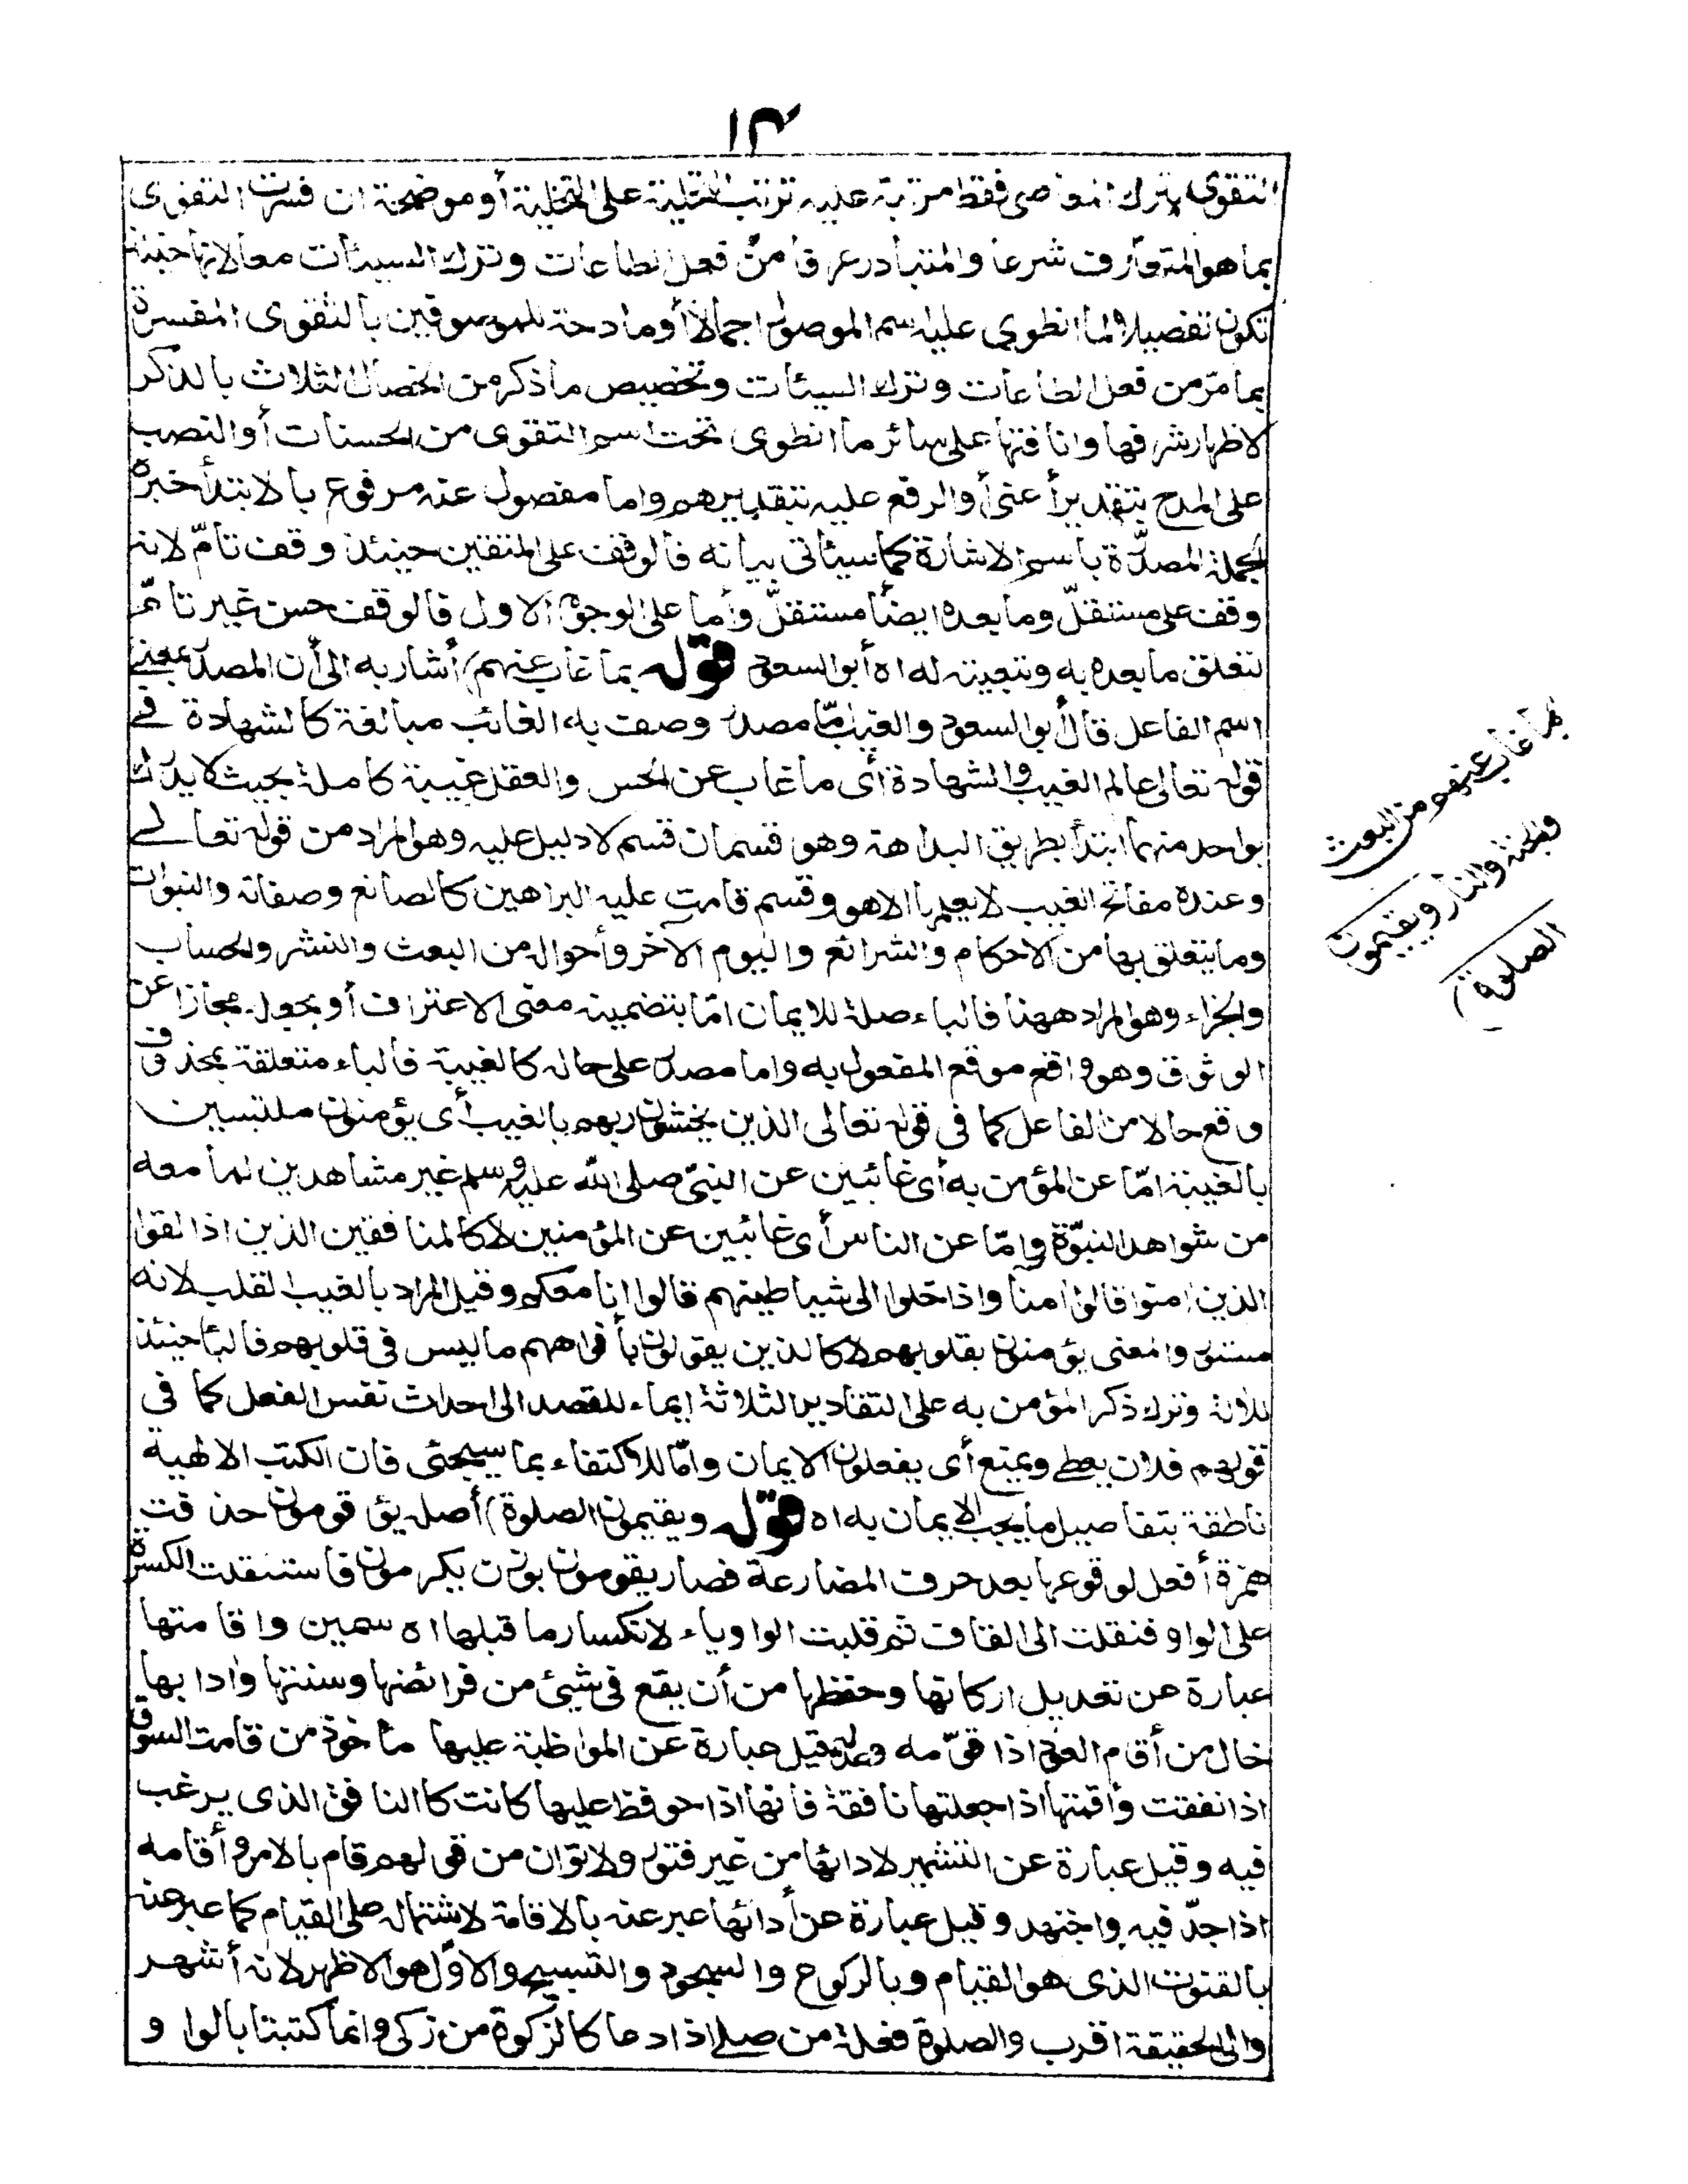 ١٣
التقوى بترك المعاصى فقط مرتبة عليه ترتب التحلية على التخلية أو موضحة ان فسرت التقوى
بما هو المتعارف شرعا والمتبادر عرفا من فعل الطاعات وترك السيئات معا لانها حينئذ
تكون تفصيلا لما انطوى عليه اسم الموصول اجمالا أو مادحة للموصوفين بالتقوى المفسرة
بما مرّ من فعل الطاعات وترك السيئات وتخصيص ما ذكر من الخصال الثلاث بالذكر
لاظهار شرفها وانافتها على سائر ما انطوى تحت اسم التقوى من الحسنات أو النصب
على المدح بتقدير أعنى أو الرفع عليه بتقديرهم واما مفصول عنه مرفوع بالابتدأ خبره
الجملة المصدّرة باسم الاشارة كما سيئاتى بيانه فالوقف على المتقين حينئذ وقف تامّ لانه
وقف على مستقلّ وما بعده ايضأ مستقلّ وأما على الوجوه الاول فالوقف حسن غير تامّ
لتعلق ما بعده به وتبعيته له اه أبو السعود قوله بما غاب عنهم) أشار به الى أن المصدر بمعنى
اسم الفاعل قال أبو السعود والغيب امّا مصدر وصف به الغائب مبالغة كالشهادة فى
قوله تعالى عالم الغيب والشهادة أى ما غاب عن الحس والعقل غيبة كاملة بحيث لا يدرك
بواحد منهما ابتدأ بطريق البداهة وهو قسمان قسم لا دليل عليه وهو المراد من قوله تعالى
وعنده مفاتح الغيب لا يعلمها الا هو وقسم قامت عليه البراهين كالصانع وصفاته والنبوات
وما يتعلق بها من الاحكام والشرائع واليوم الاخر وأحواله من البعث والنشر والحساب
والجزاء وهو المراد ههنا فالباء صلة للايمان امّا بتضمينه معنى الاعتراف أو بجعله مجازا عن
الوثوق وهو واقع موقع المفعول به واما مصدر على حاله كالغيبة فالباء متعلقة بمحذوف
وقع حالا من الفاعل كما فى قوله تعالى الذين يخشون ربهم بالغيب أى يؤمنون ملتبسين
بالغيبة امّا عن المؤمن به أى غائبين عن النبىّ صلى الله عليه وسلم غير مشاهدين لما معه
من شواهد النبوّة وامّا عن الناس أى غائبين عن المؤمنين لا كالمنافقين الذين اذا لقوا
الذين امنوا قالوا امنا واذا خلوا الى شياطينهم قالوا انا معكم وقيل المراد بالغيب القلب لانه
مستور والمعنى يؤمنون بقلوبهم لا كالذين يقولون بأفواههم ما ليس فى قلوبهم فالباء حينئذ
للالة وترك ذكر المؤمن به على التقادير الثلاثة ايماء للقصد الى احداث نفس الفعل كما فى
قولهم فلان يعطى ويمنع أى يفعلون الايمان وامّا للاكتفاء بما سيجئى فان الكتب الالهية
ناطقة بتفاصيل ما يجب الايمان به اه قوله ويقيمون الصلوة) أصله يؤقومون حذفت
همزة أفعل لوقوعها بعد حرف المضارعة فصار يقومون بوزن يكرمون فاستثقلت الكسرة
على الواو فنقلت الى القاف ثم قلبت الواو ياء لانكسار ما قبلها اه سمين واقامتها
عبارة عن تعديل اركانها وحفظها من أن يقع فى شيئ من فرائضها وسننها وادابها
خال من أقام العود اذا قوّمه وعدله وقيل عبارة عن المواظبة عليها ماخوذ من قامت السوق
اذا نفقت وأقمتها اذا جعلتها نافقة فانها اذا حوفظ عليها كانت كالنافق الذى يرغب
فيه وقيل عبارة عن التشمير لادائها من غير فتور ولا توان من قولهم قام بالامر وأقامه
اذا جدّ فيه واجتهد وقيل عبارة عن أدائها عبر عنه بالاقامة لاشتماله على القيام كما عبر عنه
بالقنوت الذى هو القيام وبالركوع والسجود والتسبيح والاوّل هو الاظهر لانه أشهر
والى الحقيقة اقرب والصلوة فعلة من صلى اذا دعا كالزكوة من زكى وانما كتبتا بالواو
بما غاب عنهم من البعث
والجنة والنار ويقيمون
الصلوة)